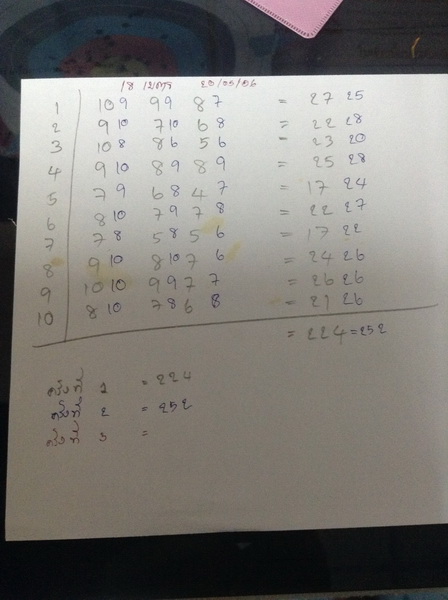 18 เมตร 20/05/56
1 10 9 9 9 8 7 = 27 25
2 9 10 7 10 6 8 = 22 28
3 10 8 8 6 5 6 = 23 20
4 9 10 8 9 8 9 = 25 28
5 7 9 6 8 4 7 = 17 24
6 8 10 7 9 7 8 = 22 27
7 7 8 5 8 5 6 = 17 22
8 9 10 8 10 7 6 = 24 26
9 10 10 9 9 7 7 = 26 26
10 8 10 7 8 6 8 = 21 26
= 224 = 252
ครั้งที่ 1 = 224
ครั้งที่ 2 = 252
ครั้งที่ 3 =